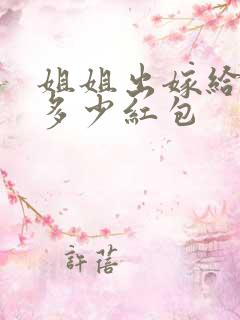 姐姐出嫁給
多少紅包
許蓓